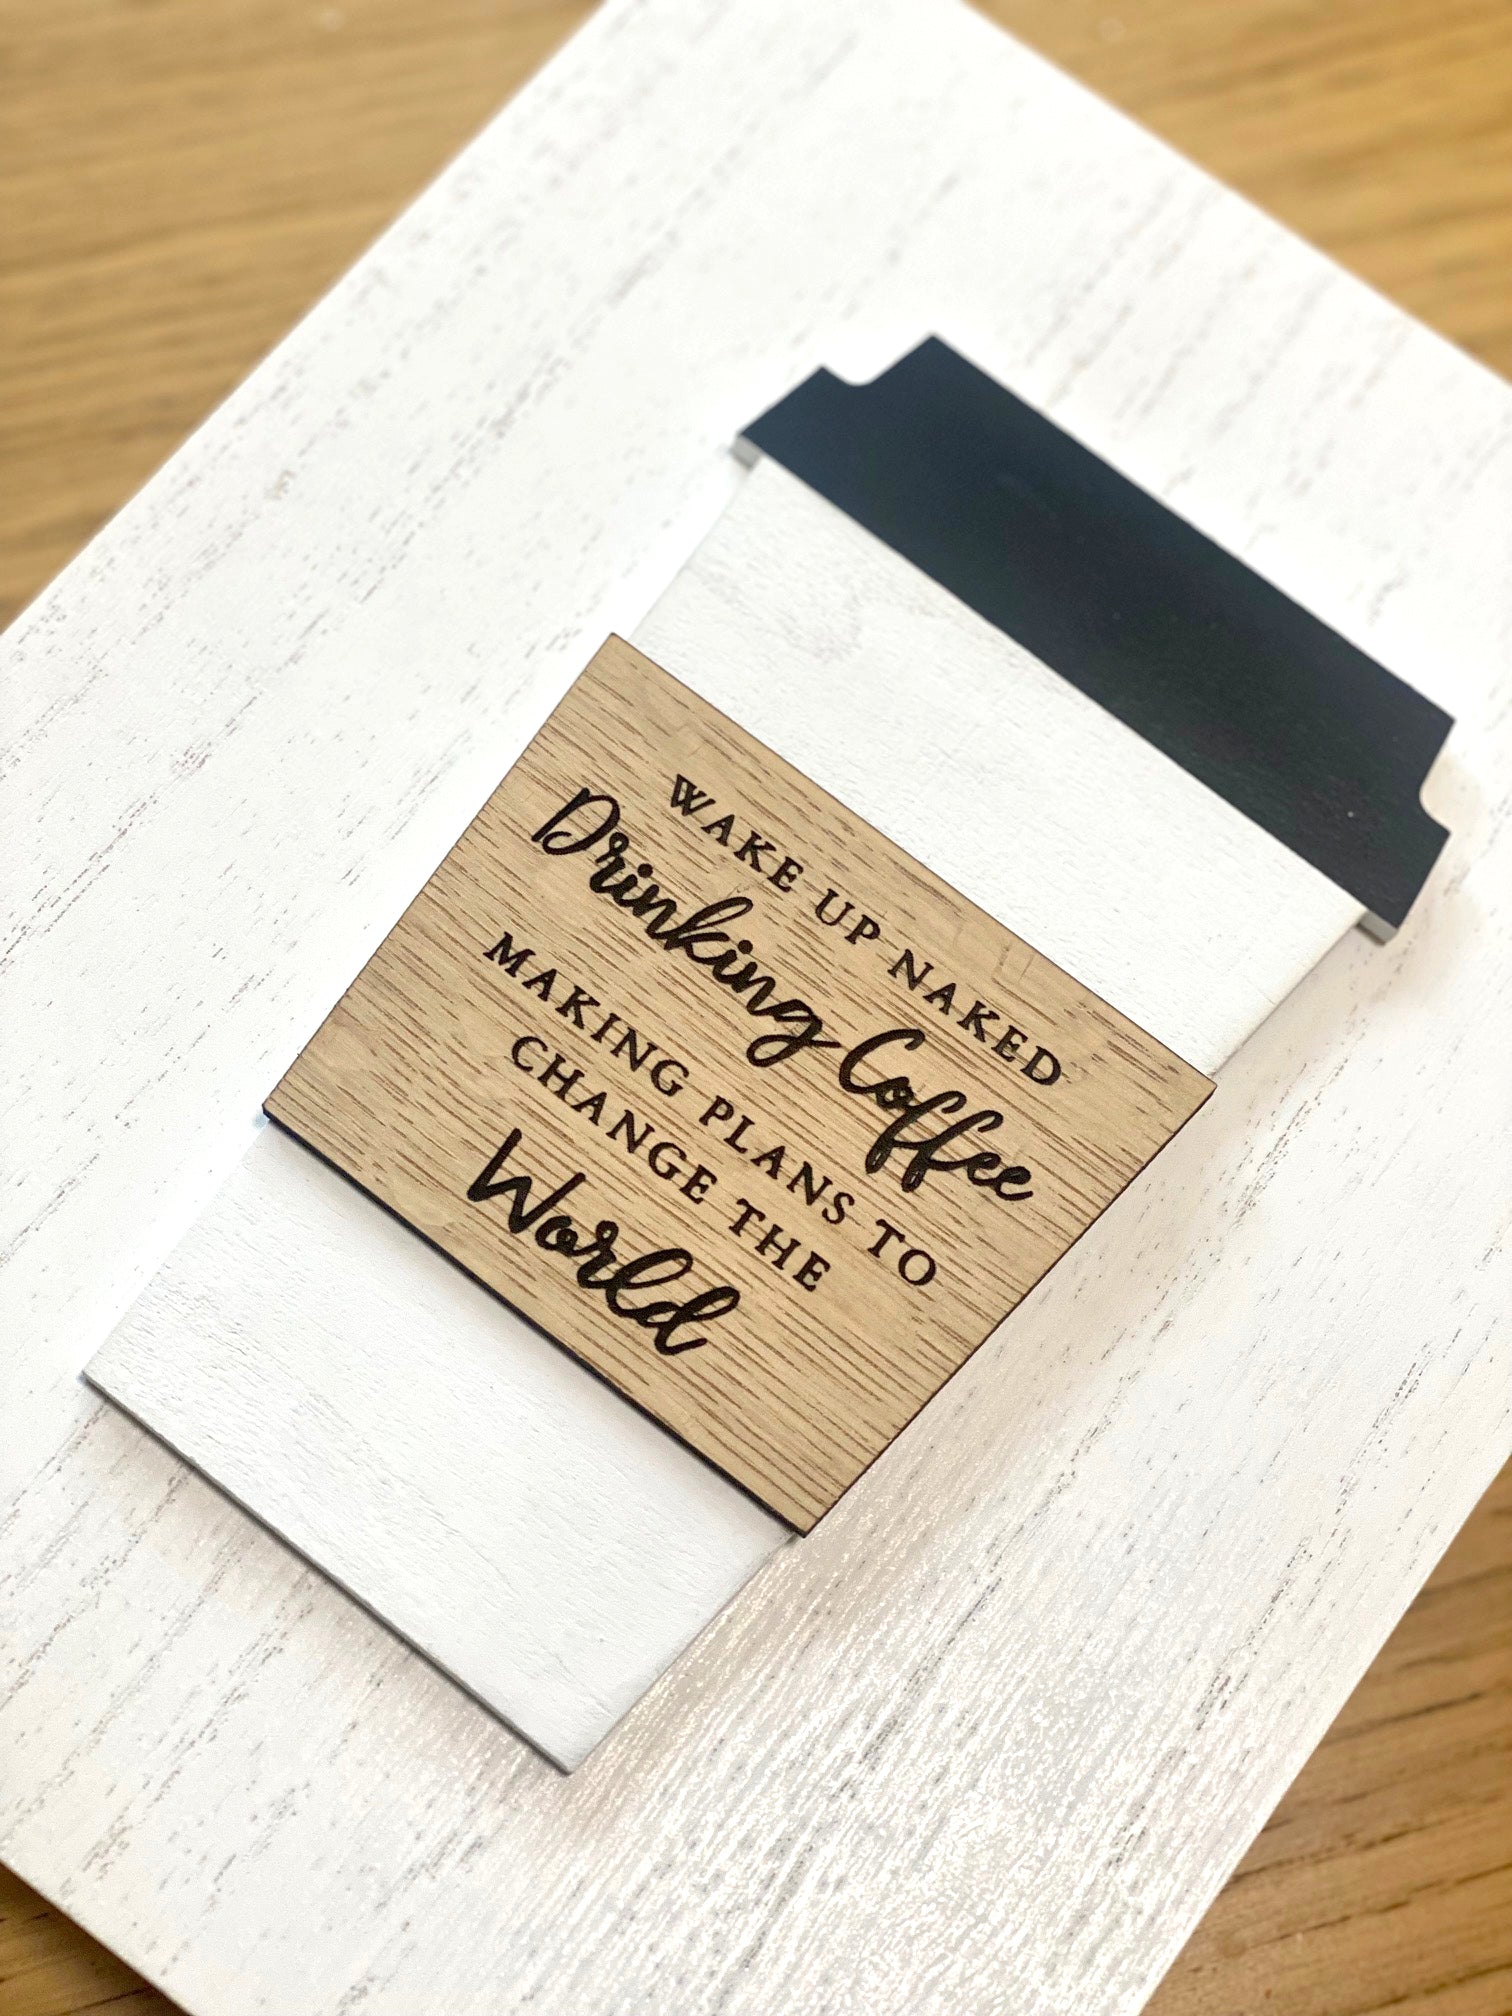 WAKE UP NAKED
Drinking Coffee
MAKING PLANS TO
CHANGE THE
World